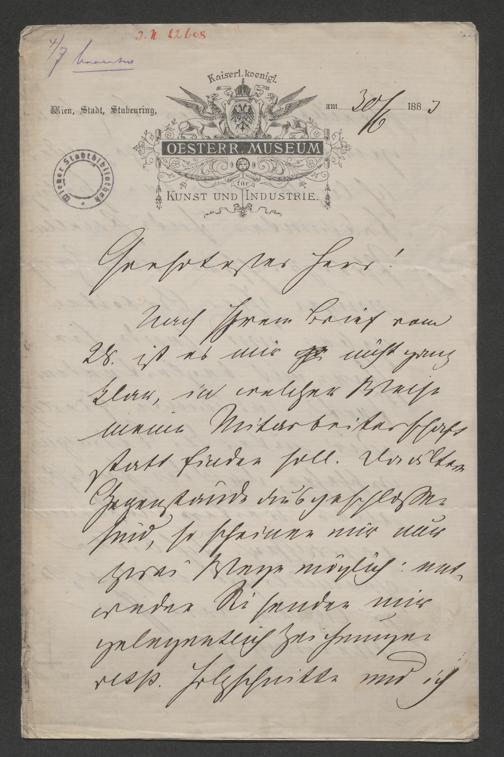 J. N. 62608
4/7
Kaiserl. koenigl.
Wien, Stadt, Stubenring,
am 30/6 1883
OESTERR. MUSEUM
für
KUNST UND INDUSTRIE.
Wiener Stadtbibliothek
Geehrtester Herr!
Nach Ihrem Brief vom
28. ist es mir nicht ganz
klar, in welcher Weise
meine Mitarbeiterschaft
statt finden soll. Da ältere
Gegenstände ausgeschlossen
sind, so scheinen mir nur
zwei Wege möglich: ent-
weder Sie senden mir
gelegentlich Zeichnungen
resp. Holzschnitte und ich